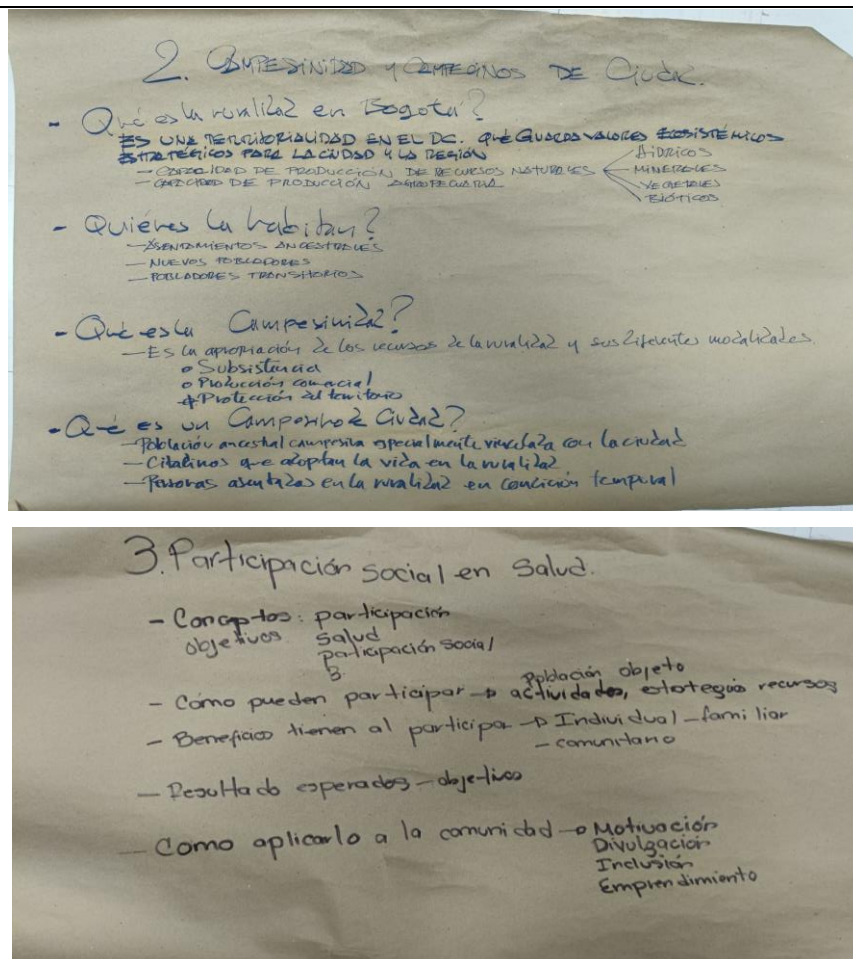 2. CAMPESINIDAD Y CAMPECINOS DE Ciudad.
- Qué es la ruralidad en Bogotá?
ES UNA TERRITORIALIDAD EN EL DC. QUE GUARDA VALORES ECOSISTÉMICOS
ESTRATÉGICOS PARA LA CIUDAD Y LA REGIÓN
- CAPACIDAD DE PRODUCCIÓN DE RECURSOS NATURALES
HIDRICOS
MINERALES
VEGETALES
BIÓTICOS
- CAPACIDAD DE PRODUCCIÓN AGROPECUARIA
- Quiénes la habitan?
- ASENTAMIENTOS ANCESTRALES
- NUEVOS POBLADORES
- POBLADORES TRANSITORIOS
- Qué es la Campesinidad?
- Es la apropiación de los recursos de la ruralidad y sus diferentes modalidades.
o Subsistencia
o Producción comercial
o Protección del territorio
- Qué es un Campesino de Ciudad?
- Población ancestral campesina especialmente vinculada con la ciudad
- Citadinos que adoptan la vida en la ruralidad
- Personas asentadas en la ruralidad en condición temporal
3. Participación social en Salud.
- Conceptos: participación
objetivos salud
participación social
3.
Población objeto
- Cómo pueden participar → actividades, estategias recursos
- Beneficios tienen al participar → Individual - familiar
- comunitario
- Resultado esperados - objetivos
- Como aplicarlo a la comunidad → Motivación
Divulgación
Inclusión
Emprendimiento